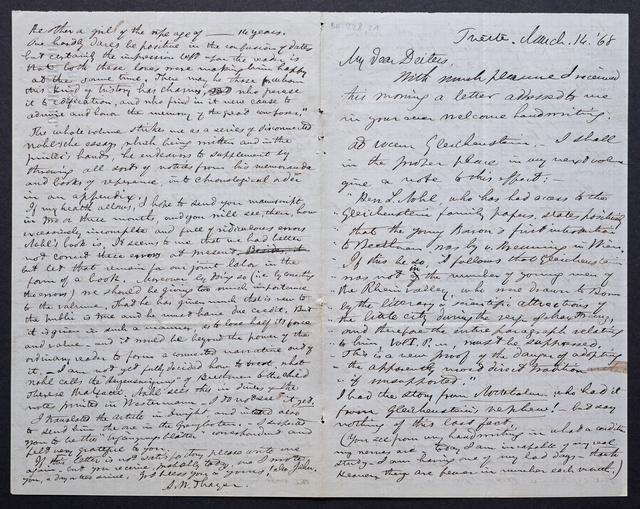 Trieste. March. 14. '68
My dear Deiters,
With much pleasure I received
this morning a letter addressed to me
in your ever welcome handwriting.
I shall
in the proper place in my next volume
give a note to this effect: —
"Herr L. Nohl, who has had access to the
Gleichenstein family papers, states positively
that the young Baron's first introduction
to Beethoven was by v. Breuning in Wien.
If this be so, it follows that Gleichenstein
was not in the number of young men of
the Rhein valley, who were drawn to Bonn
by the literary & scientific attractions of
the little city during the reign of Max Franz,
and therefore the entire paragraph relating
to him, Vol. I. p. , must be suppressed.
This is a new proof of the danger of adopting
the apparently most direct tradition
if unsupported."
I had the story from Nottebohm, who had it
from Gleichenstein's nephew! — but say
nothing of this last fact.
(You see from my handwriting in what a condition
my nerves are — today I am incapable of any real
study — I am having one of my bad days — thank
Heaven they are fewer in number each month.)
be other a girl of the ripe age of — 14 years.
One hardly dares be positive in the confusion of dates
but certainly the impression left upon the reader is
that both these loves were making him happy
at the same time. There may be those for whom
this kind of history has charms, and who peruse
it to edification, and who find in it new cause to
admire and honor the memory of the great composer.
The whole volume strikes me as a series of disconnected
Nohlsche essays, which being written and in the
printer's hands, he endeavors to supplement by
throwing all sorts of notes from his memoranda
and books of reference, into chronological order
in an appendix.
If my health allows, I hope to send you manuscript
in two or three months, and you will see, then, how
excessively incomplete and full of ridiculous errors
Nohl's book is. It seems to me that we had better
not correct these errors at present,
but let that remain for our joint labor in the
form of a book. Moreover by doing so (i.e. by correcting
the errors) we should be giving too much importance
to the volume. That he has given much that is new to
the public is true and he must have due credit. But
it is given in such a manner, as to lose half its force
and value — and it would be beyond the power of the
ordinary reader to form a connected narrative out of
it. — I am not yet fully decided how to treat, what
Nohl calls the of Beethoven & the child
Therese Malfatti. Nohl sees this in the
notes printed in Westermann. I do not see it yet.
I translated the article in Dwight, and intend also
to send him the one in the Grenzboten. — I suspected
you to be the correspondent and
felt very grateful to you.
If this letter is not satisfactory please write me
again — but you receive probably today, one I wrote
you, a day or two since. God bless you & yours!
A. W. Thayer.